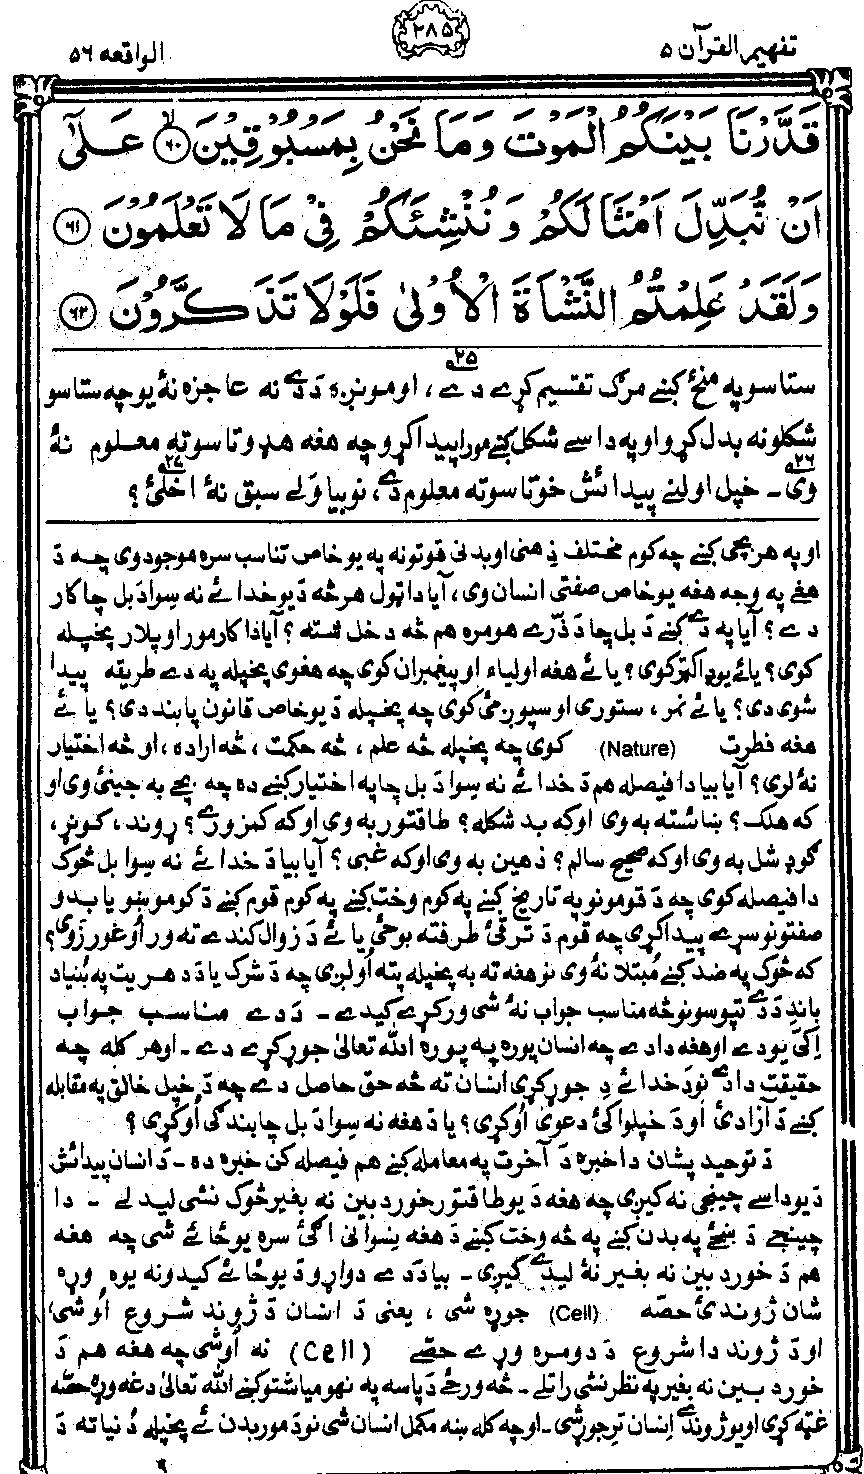 تفهیم القرآن ۵
۲۸۵
الواقعه ۵۶
قَدَّرْنَا بَيْنَكُمُ الْمَوْتَ وَمَا نَحْنُ بِمَسْبُوْقِيْنَ ۶۰ عَلٰٓى
اَنْ نُّبَدِّلَ اَمْثَالَكُمْ وَ نُنْشِئَكُمْ فِيْ مَا لَا تَعْلَمُوْنَ ۶۱
وَ لَقَدْ عَلِمْتُمُ النَّشْاَةَ الْاُوْلٰى فَلَوْلَا تَذَكَّرُوْنَ ۶۲
۲۵
ستاسو په منځ کښے مرګ تقسیم کړے دے، او مونږه د دے نه عاجزه نۀ یو چه ستاسو
شکلونه بدل کړو او په داسے شکل کښے مو راپیدا کړو چه هغه هډو تاسو ته معلوم نۀ
۲۶
وی۔ خپل اولنے پیدائش خو تاسو ته معلوم دے، نو بیا ولے سبق نۀ اخلئ؟
۲۷
او په هر بچی کښے چه کوم مختلف ذهنی او بدنی قوتونه په یو خاص تناسب سره موجود وی چه د
هغے په وجه هغه یو خاص صفتی انسان وی، آیا دا ټول هر څه د یو خدائے نه سوا د بل چا کار
دے؟ آیا په دے کښے د بل چا د ذرّے هومره هم څه دخل شته؟ آیا دا کار مور او پلار پخپله
کوی؟ یا ئے یو ډاکټر کوی؟ یا ئے هغه اولیاء او پیغمبران کوی چه هغوی پخپله په دے طریقه پیدا
شوی دی؟ یا ئے نمر، ستوری او سپوږمئ کوی چه پخپله د یو خاص قانون پابند دی؟ یا ئے
هغه فطرت (Nature) کوی چه پخپله څه علم، څه حکمت، څه اراده، او څه اختیار
نۀ لری؟ آیا بیا دا فیصله هم د خدائے نه سوا د بل چا په اختیار کښے ده چه بچے به جینئ وی او
که هلک؟ ښائسته به وی او که بد شکله؟ طاقتور به وی او که کمزورے؟ ړوند، کوڼ،
ګوډ شل به وی او که صحیح سالم؟ ذهین به وی او که غبی؟ آیا بیا د خدائے نه سوا بل څوک
دا فیصله کوی چه د قومونو په تاریخ کښے په کوم وخت کښے په کوم قوم کښے د کومو ښو یا بدو
صفتونو سړے پیدا کړی چه قوم د ترقئ طرف ته بوځی یا ئے د زوال کندے ته ور اوغورزوی؟
که څوک په ضد کښے مُبتلا نۀ وی نو هغه ته به پخپله پته اُولږی چه د شرک یا د دهریت په بُنیاد
باندِ د دے تپوسونو څه مناسب جواب نۀ شی ورکړے کیدے۔ د دے مناسب جواب
اِکی یو دے او هغه دا دے چه انسان پوره په پوره اللّٰه تعالیٰ جوړ کړے دے۔ او هر کله چه
حقیقت دا دے نو د خدائے دِ جوړ کړی انسان ته څه حق حاصل دے چه د خپل خالق په مقابله
کښے د آزادئ او د خپلواکئ دعویٰ اُوکړی؟ یا د هغه نه سوا د بل چا بندګی اُوکړی؟
د توحید پشان دا خبره د آخرت په معامله کښے هم فیصله کن خبره ده۔ د انسان پیدائش
د یو داسے چینجی نه کیږی چه هغه د یو طاقتور خورد بین نه بغیر څوک نشی لیدلے۔ دا
چینجے د ښځے په بدن کښے په څه وخت کښے د هغه ښوانی اګئ سره یو ځائے شی چه هغه
هم د خورد بین نه بغیر نۀ لیدلے کیږی۔ بیا د دے دواړو د یو ځائے کیدو نه یوه وړه
شان ژوندئ حصّه (Cell) جوړه شی، یعنی د انسان د ژوند شروع اُوشی،
او د ژوند دا شروع د دومره وړے حصّے (Cell) نه اُوشی چه هغه هم د
خورد بین نه بغیر په نظر نشی راتلے۔ څه ورځے د پاسه په نهو میاشتو کښے اللّٰه تعالیٰ دغه وړه حصّه
غټه کړی او یو ژوندے اِنسان ترِ جوړ شی۔ او چه کله ښه مکمل انسان شی نو د مور بدن ئے پخپله دُنیا ته د